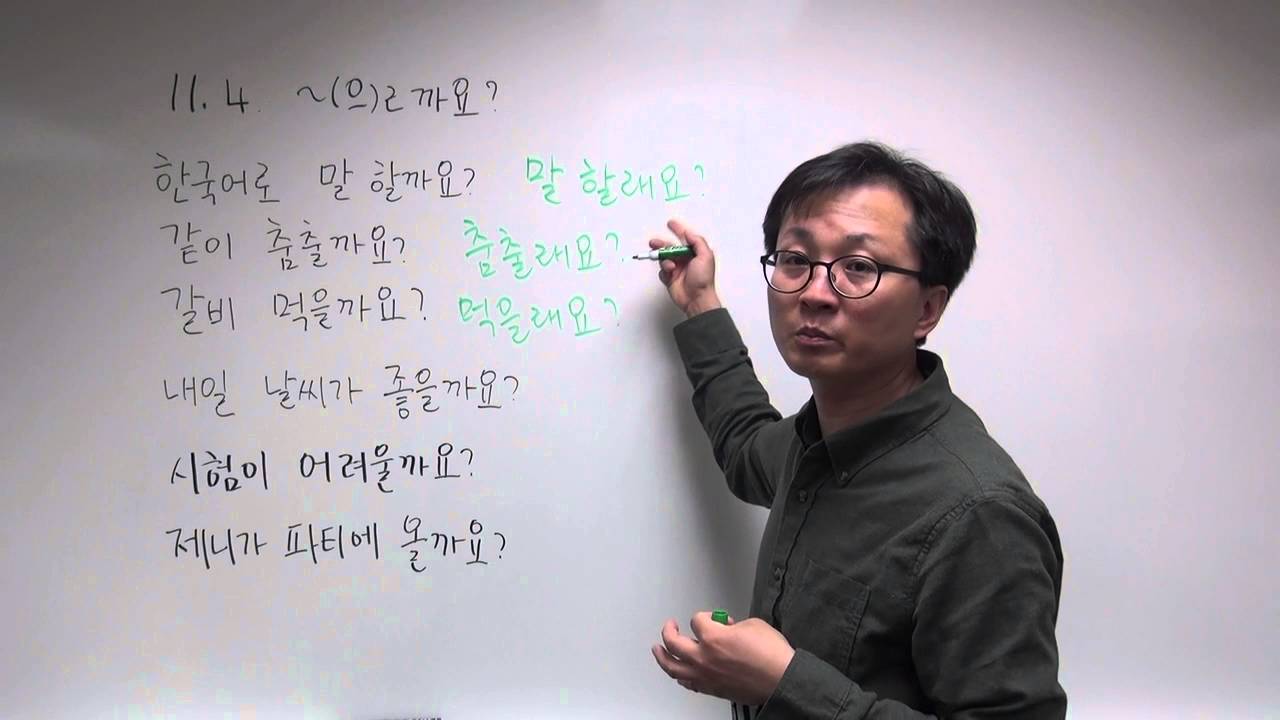 11.4. ~(으)ㄹ까요?
한국어로 말 할까요? 말 할래요?
같이 춤출까요? 춤출래요?
갈비 먹을까요? 먹을래요?
내일 날씨가 좋을까요?
시험이 어려울까요?
제니가 파티에 올까요?